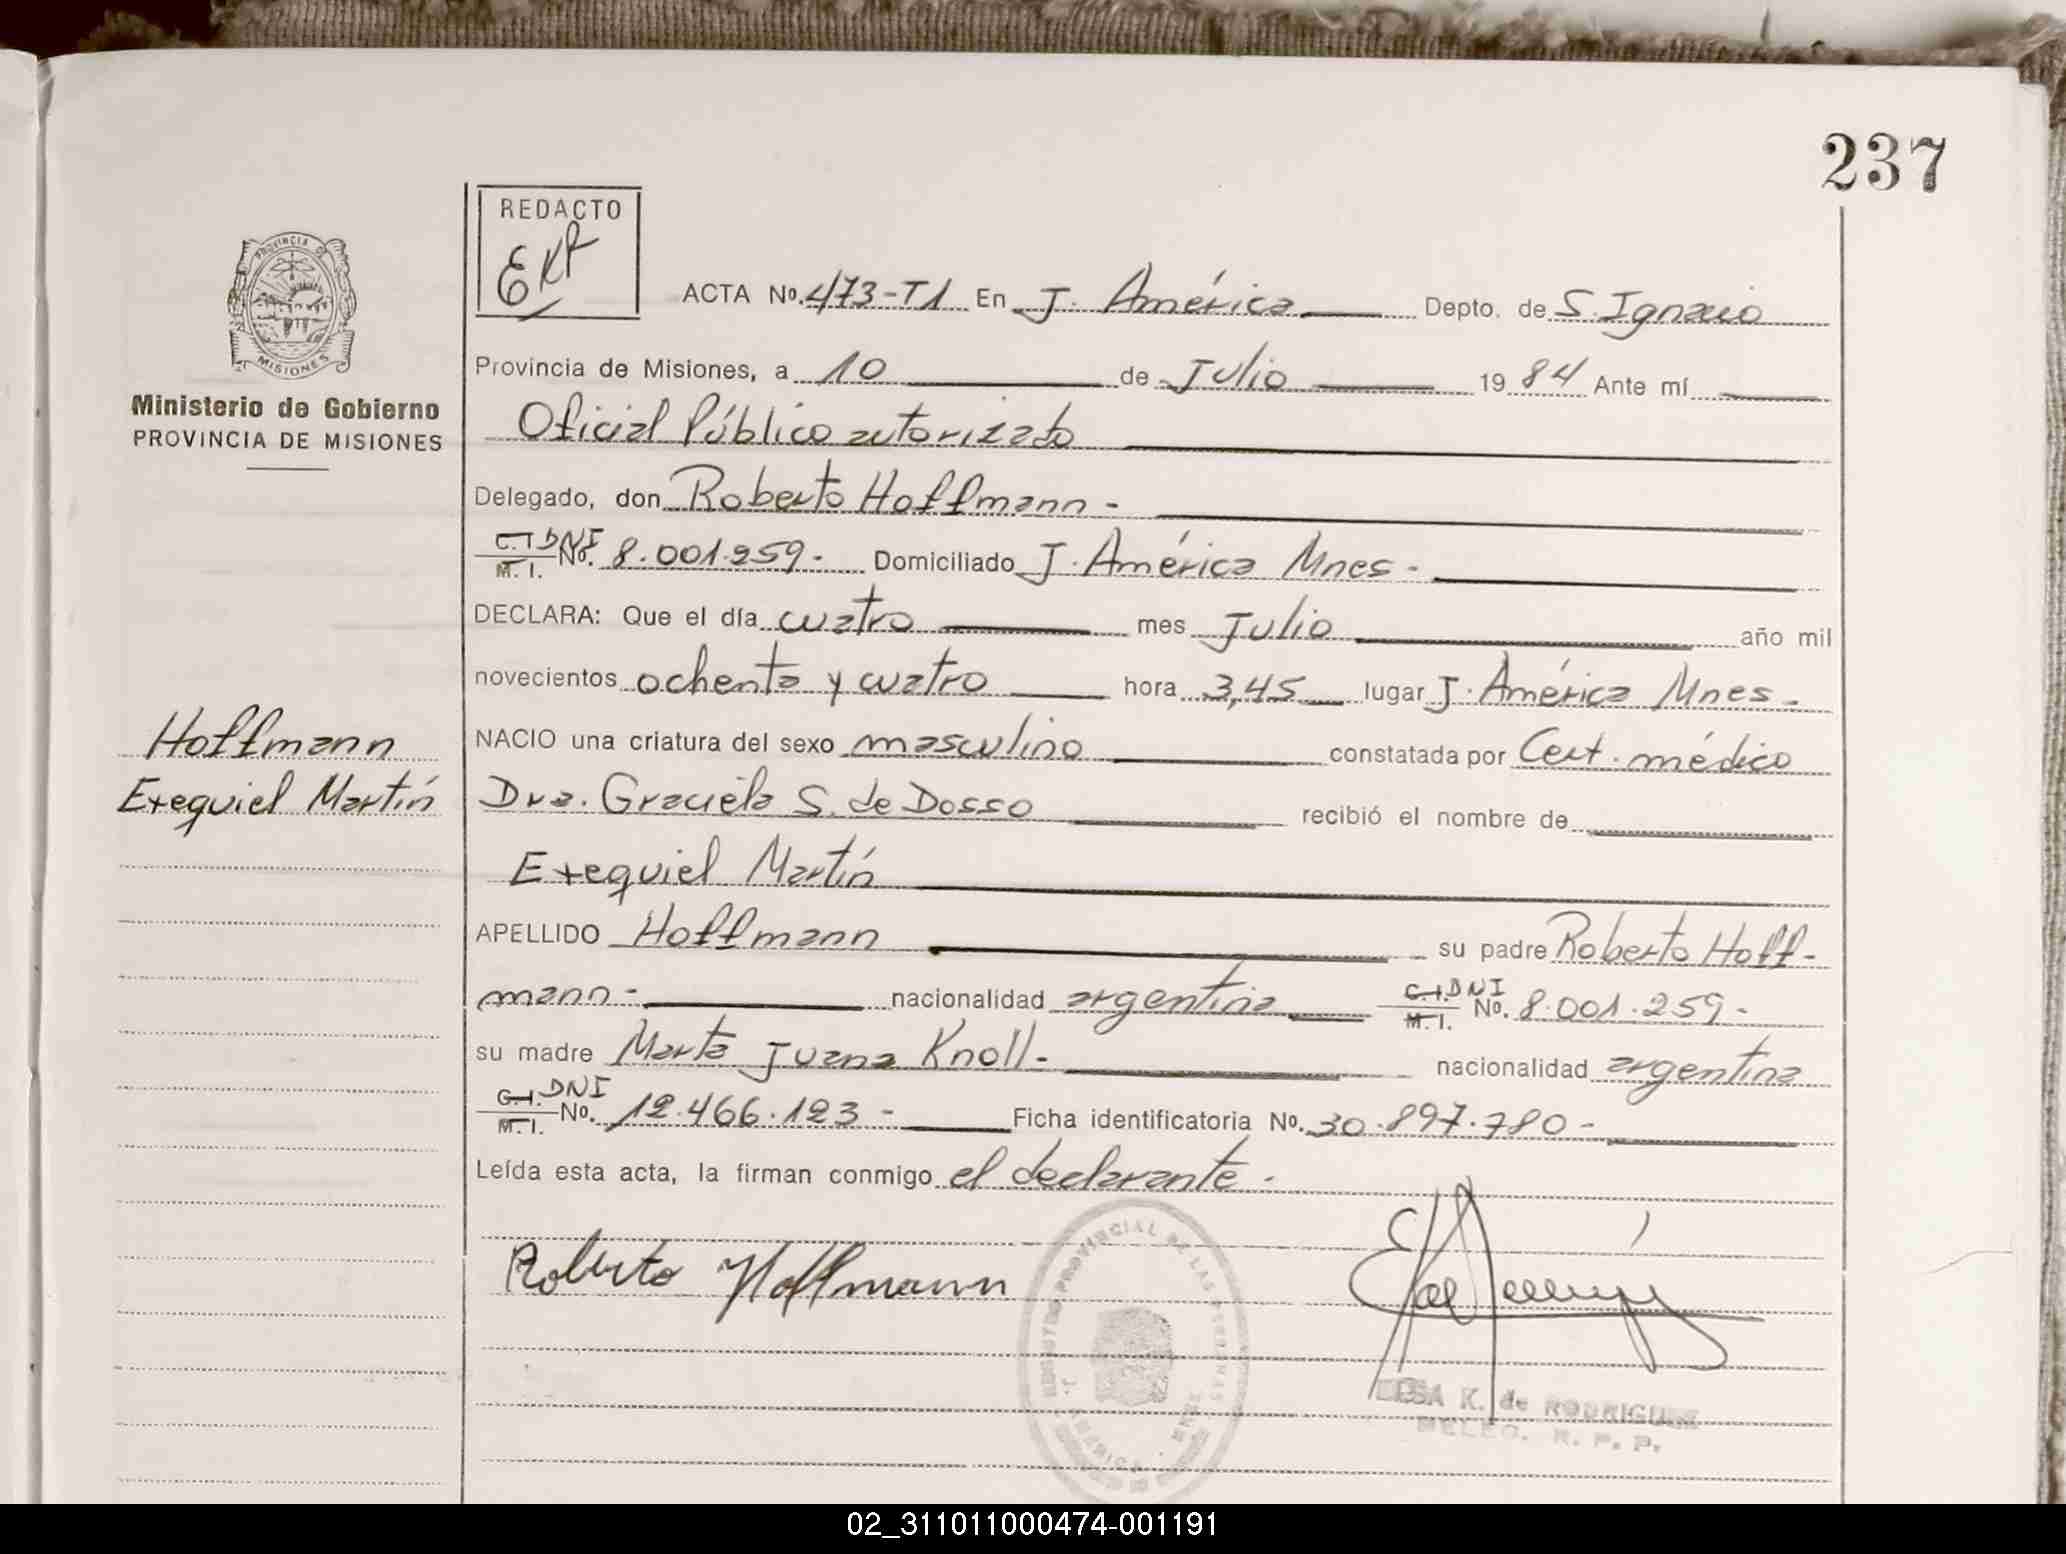 237
REDACTO
EKR
ACTA Nº. 473-T1 En J. América Depto. de S. Ignacio
PROVINCIA DE
MISIONES
Provincia de Misiones, a 10 de Julio 19 84 Ante mí
Ministerio de Gobierno
PROVINCIA DE MISIONES
Oficial Público autorizado
Delegado, don Roberto Hoffmann -
C.I. DNI
M. I. No. 8.001.259 - Domiciliado J. América Mnes -
DECLARA: Que el día cuatro mes Julio año mil
novecientos ochenta y cuatro hora 3,45 lugar J. América Mnes -
Hoffmann
Exequiel Martín
NACIO una criatura del sexo masculino constatada por Cert. médico
Dra. Graciela S. de Dosso recibió el nombre de
Exequiel Martín
APELLIDO Hoffmann su padre Roberto Hoff-
mann - nacionalidad argentina C.I. DNI M. I. No. 8.001.259 -
su madre Marta Juana Knoll - nacionalidad argentina
C.I. DNI
M. I. No. 12.466.123 - Ficha identificatoria No. 30.897.780 -
Leída esta acta, la firman conmigo el declarante -
Roberto Hoffmann
REGISTRO PROVINCIAL DE LAS PERSONAS
K. de RODRIGUEZ
DELEG. R. P. P.
02_311011000474-001191